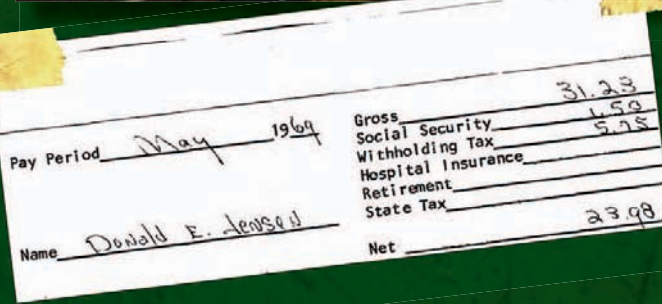 Pay Period May 1969
Name Donald E. Jensen
Gross 31.23
Social Security 1.50
Withholding Tax 5.75
Hospital Insurance
Retirement
State Tax
Net 23.98